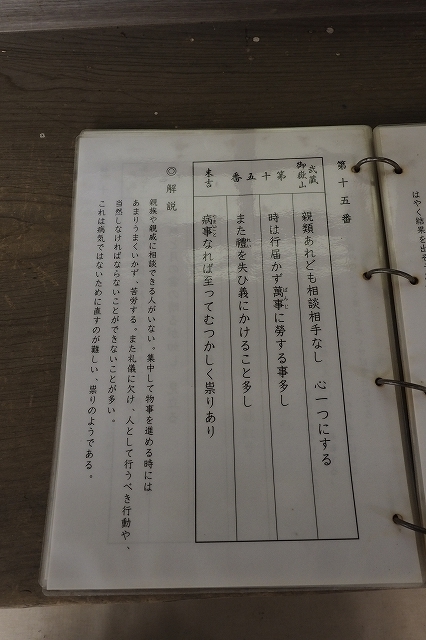 はやく結果を出そ
第十五番
武蔵
御嶽山
第十五番
末吉
親類あれども相談相手なし 心一つにする
時は行届かず萬事に勞する事多し
ばんじ
また禮を失ひ義にかけること多し
れい
病事なれば至ってむつかしく祟りあり
◎解説
親族や親戚に相談できる人がいない。集中して物事を進める時には
あまりうまくいかず、苦労する。また礼儀に欠け、人として行うべき行動や、
当然しなければならないことができないことが多い。
これは病気ではないために直すのが難しい、祟りのようである。